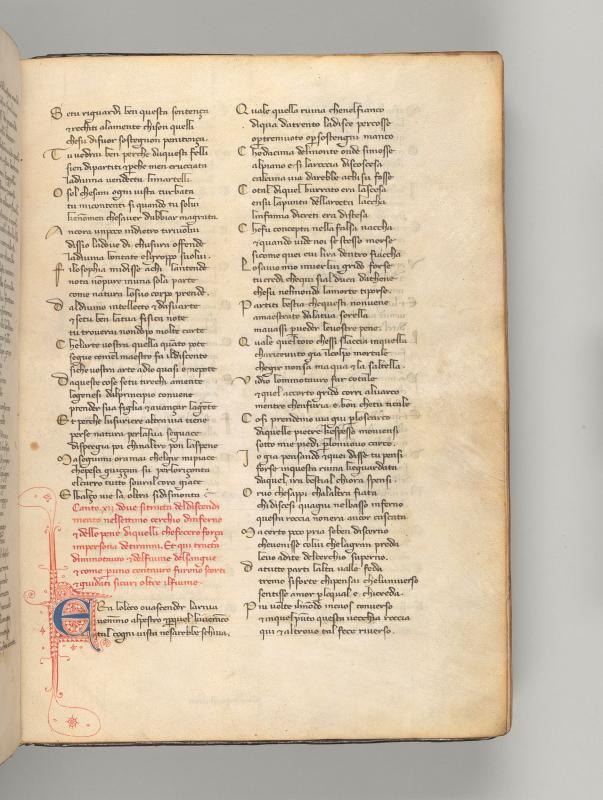 Se tu riguardi ben questa sentença
& rechiti alamente chison quelli
chesu difuor sostegnon penitença.
Tu vedrai ben perche daquesti felli
sien dipartiti & perche men crucciata
ladivina vendecta li martelli.
O sol chesani ogni vista turbata
tu mi contenti si quando tu solvi
che non men che saver dubbiar magrata
Ancora unpoco indietro ti rivolvi
dissio ladove di chusura offende
ladivina bontate elgroppo suolvi.
Filosophia midisse achi lantende
nota nonpure inuna sola parte
come natura losuo corso prende.
Dal divino intellecto & dasuarte
& setu ben latua fisica note
tu troverai nondopo molte carte
Chelarte vostra quella quanto pote
segue comel maestro fa ildiscente
siche vostra arte adio quasi e nepote
Daqueste cose setu tirechi amente
lagenesi dalprincipio convene
prender sua figlia & avançar lagente
Et perche lusuriere altra via tiene
perse natura perlasua seguace
dispregia poi chinaltro pon laspene
Ma seguimi oramai chelgir mipiace
chepesci guiççan su perlorigonta
elcarro tutto sovral coro giace
Elbalço via la oltra sidismonta :
Canto .xij. dove sitracta deldiscendi
mento nelsettimo cerchio dinferno
& delle pene diquelli chefecero força
imperson& detiranni. Et qui tracta
diminotauro & delfiume delsangue
& come furono scorti
& guidati sicuri oltre ilfiume.
Era loloco ovascender lariva
venimmo alpestro & per quel
tal cogni vista nesarebbe schiva.
Quale quella ruina chenelfianco
diqua datrento ladice percosse
o per tremuoto o per sostegni manco
Che dacima delmonte onde simosse
alpiano e si laroccia discoscesa
calcuna via darebbe achi su fosse
Cotal diquel burrato era lascesa
ensu lapunta dellarotta laccha
linfamia dicreti era distesa
Chefu concepta nella falsa vaccha
& quando vide noi se stesso morse
sicome quei cui lira dentro fiaccha
Losavio mio inverlui grido forse
tu credi chequi sial duca dathene
chesu nelmondo lamorte ti porse.
Partiti bestia chequesti nonvene
amaestrato dalatua sorella
mavassi per veder levostre pene.
Quale queltoro chessi slaccia inquella
charicevuto gia ilcolpo mortale
chegir nonsa ma qua & la saltella.
Vidio lominotauro far cotale
& quel accorto grido corri alvarco
mentre chenfuria e bon chetu ticale
Cosi prendemo via giu p loscarco
diquelle pietre chespesso moviensi
sotto miei piedi p lo nuovo carco.
Io gia pensando & quei disse tu pensi
forse inquesta ruina cheguardata
daquel ira bestial chiora spensi.
Or vo chesappi chalaltra fiata
chidiscesi quagiu nelbasso inferno
questa roccia nonera ancor cascata
Ma certo poco pria seben discerno
chevenisse colui chelagran preda
levo adite delcerchio superno.
Da tutte parti lalta valle feda
tremo siforte chipensai cheluniverso
sentisse amor p loqual e chicreda.
Piu volte ilmondo incaos converso
& inquel punto questa vecchia roccia
qui & altrove tal fece riverso.